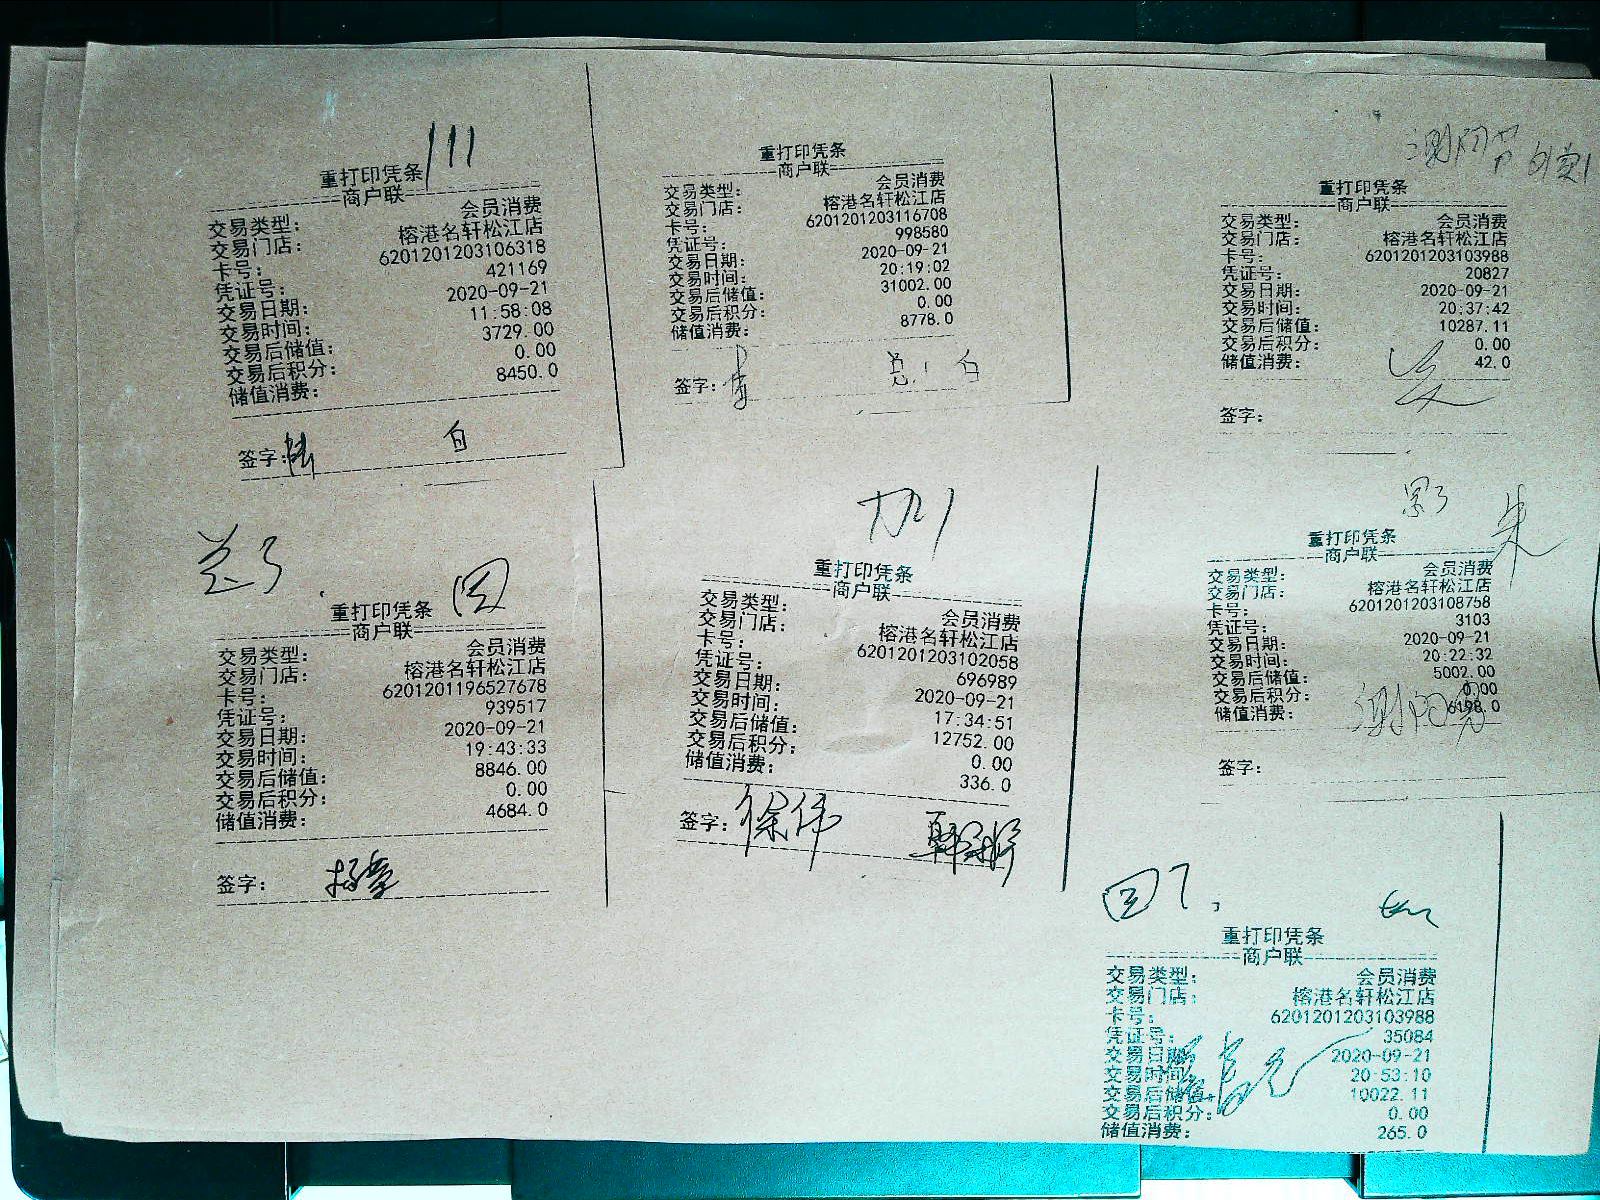 重打印凭条
商户联
交易类型： 会员消费
交易门店： 榕港名轩松江店
卡号： 6201201203106318
凭证号： 421169
交易日期： 2020-09-21
交易时间： 11:58:08
交易后储值： 3729.00
交易后积分： 0.00
储值消费： 8450.0
签字：
重打印凭条
商户联
交易类型： 会员消费
交易门店： 榕港名轩松江店
卡号： 6201201203116708
凭证号： 998580
交易日期： 2020-09-21
交易时间： 20:19:02
交易后储值： 31002.00
交易后积分： 0.00
储值消费： 8778.0
签字：
重打印凭条
商户联
交易类型： 会员消费
交易门店： 榕港名轩松江店
卡号： 6201201203103988
凭证号： 20827
交易日期： 2020-09-21
交易时间： 20:37:42
交易后储值： 10287.11
交易后积分： 0.00
储值消费： 42.0
签字：
重打印凭条
商户联
交易类型： 会员消费
交易门店： 榕港名轩松江店
卡号： 6201201196527678
凭证号： 939517
交易日期： 2020-09-21
交易时间： 19:43:33
交易后储值： 8846.00
交易后积分： 0.00
储值消费： 4684.0
签字：
重打印凭条
商户联
交易类型： 会员消费
交易门店： 榕港名轩松江店
卡号： 6201201203102058
凭证号： 696989
交易日期： 2020-09-21
交易时间： 17:34:51
交易后储值： 12752.00
交易后积分： 0.00
储值消费： 336.0
签字： 徐伟
朱
重打印凭条
商户联
交易类型： 会员消费
交易门店： 榕港名轩松江店
卡号： 6201201203108758
凭证号： 3103
交易日期： 2020-09-21
交易时间： 20:22:32
交易后储值： 5002.00
交易后积分： 0.00
储值消费： 6198.0
签字：
重打印凭条
商户联
交易类型： 会员消费
交易门店： 榕港名轩松江店
卡号： 6201201203103988
凭证号： 35084
交易日期 2020-09-21
交易时间 20:53:10
交易后储值 10022.11
交易后积分： 0.00
储值消费： 265.0